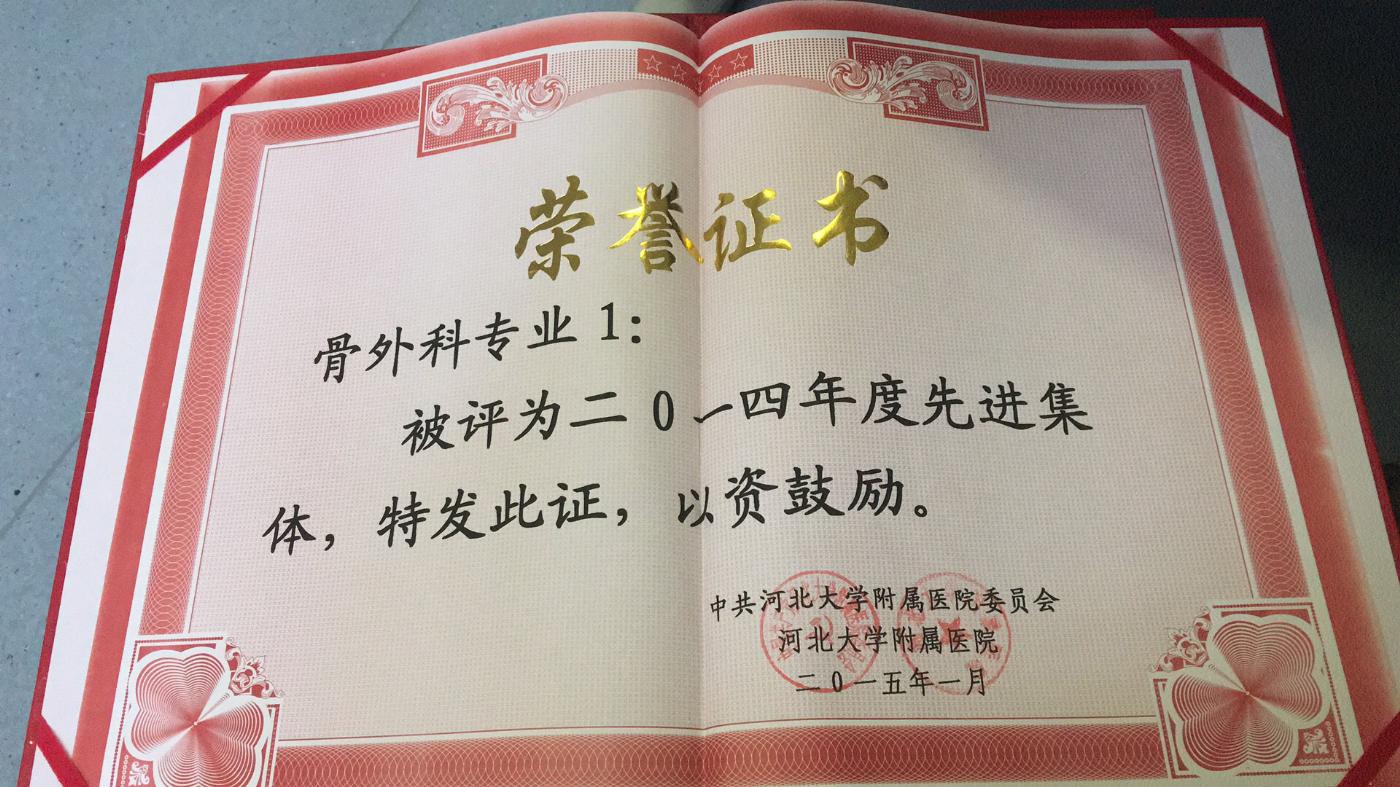 荣誉证书
骨外科专业1：
被评为二0一四年度先进集
体，特发此证，以资鼓励。
中共河北大学附属医院委员会
河北大学附属医院
二0一五年一月